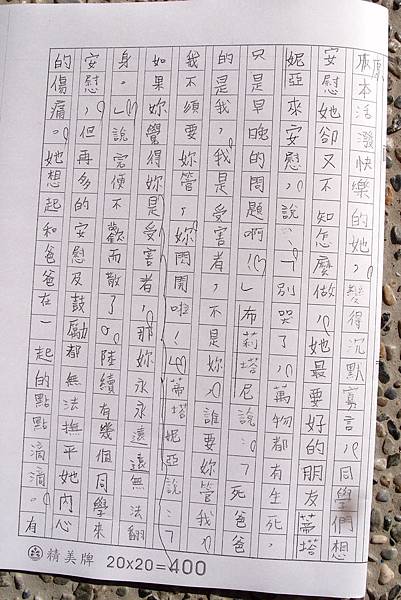 原本活潑快樂的她,變得沉默寡言,同學們想
安慰她卻又不知怎麼做,她最要好的朋友蒂塔
妮亞來安慰,說:「別哭了,萬物都有生死,
只是早晚的問題啊!」布莉塔尼說:「死爸爸
的是我,我是受害者,不是妳,誰要妳管我,
我不須要妳管,妳閃開啦!」蒂塔妮亞說:「
如果妳覺得妳是受害者,那妳永永遠遠無法翻
身。」說完便不歡而散了。陸續有幾個同學來
安慰,但再多的安慰及鼓勵都無法撫平她內心
的傷痛。她想起和爸爸在一起的點點滴滴。有
精美牌 20X20=400